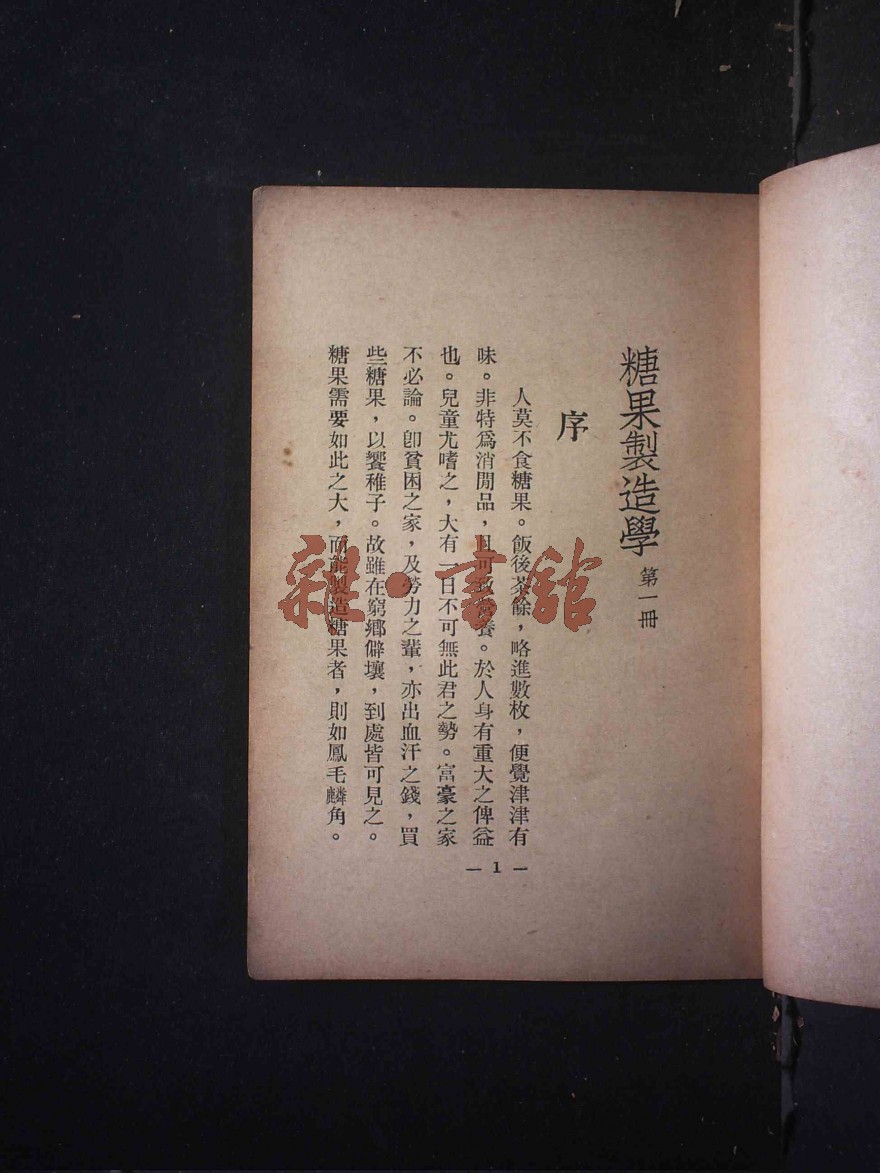 糖果製造學 第一冊
序
人莫不食糖果。飯後茶餘，略進數枚，便覺津津有
味。非特爲消閒品，且可致營養。於人身有重大之俾益
也。兒童尤嗜之，大有一日不可無此君之勢。富豪之家
不必論。卽貧困之家，及勞力之輩，亦出血汗之錢，買
些糖果，以饗稚子。故雖在窮鄉僻壤，到處皆可見之。
糖果需要如此之大，而能製造糖果者，則如鳳毛麟角。
— 1 —
雜·書館